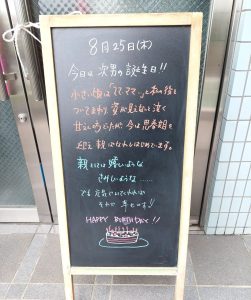 8月25日(木)
今日は次男の誕生日!!
小さい頃は「ママママ」と私の後を
ついてまわり、姿が見えないと泣く
甘えん坊でしたが、今は思春期を
迎え 親ばなれしはじめています。
親としては嬉しいような
さみしいような……
でも元気でいてくれれば
それで幸せです!!
HAPPY BIRTHDAY!!